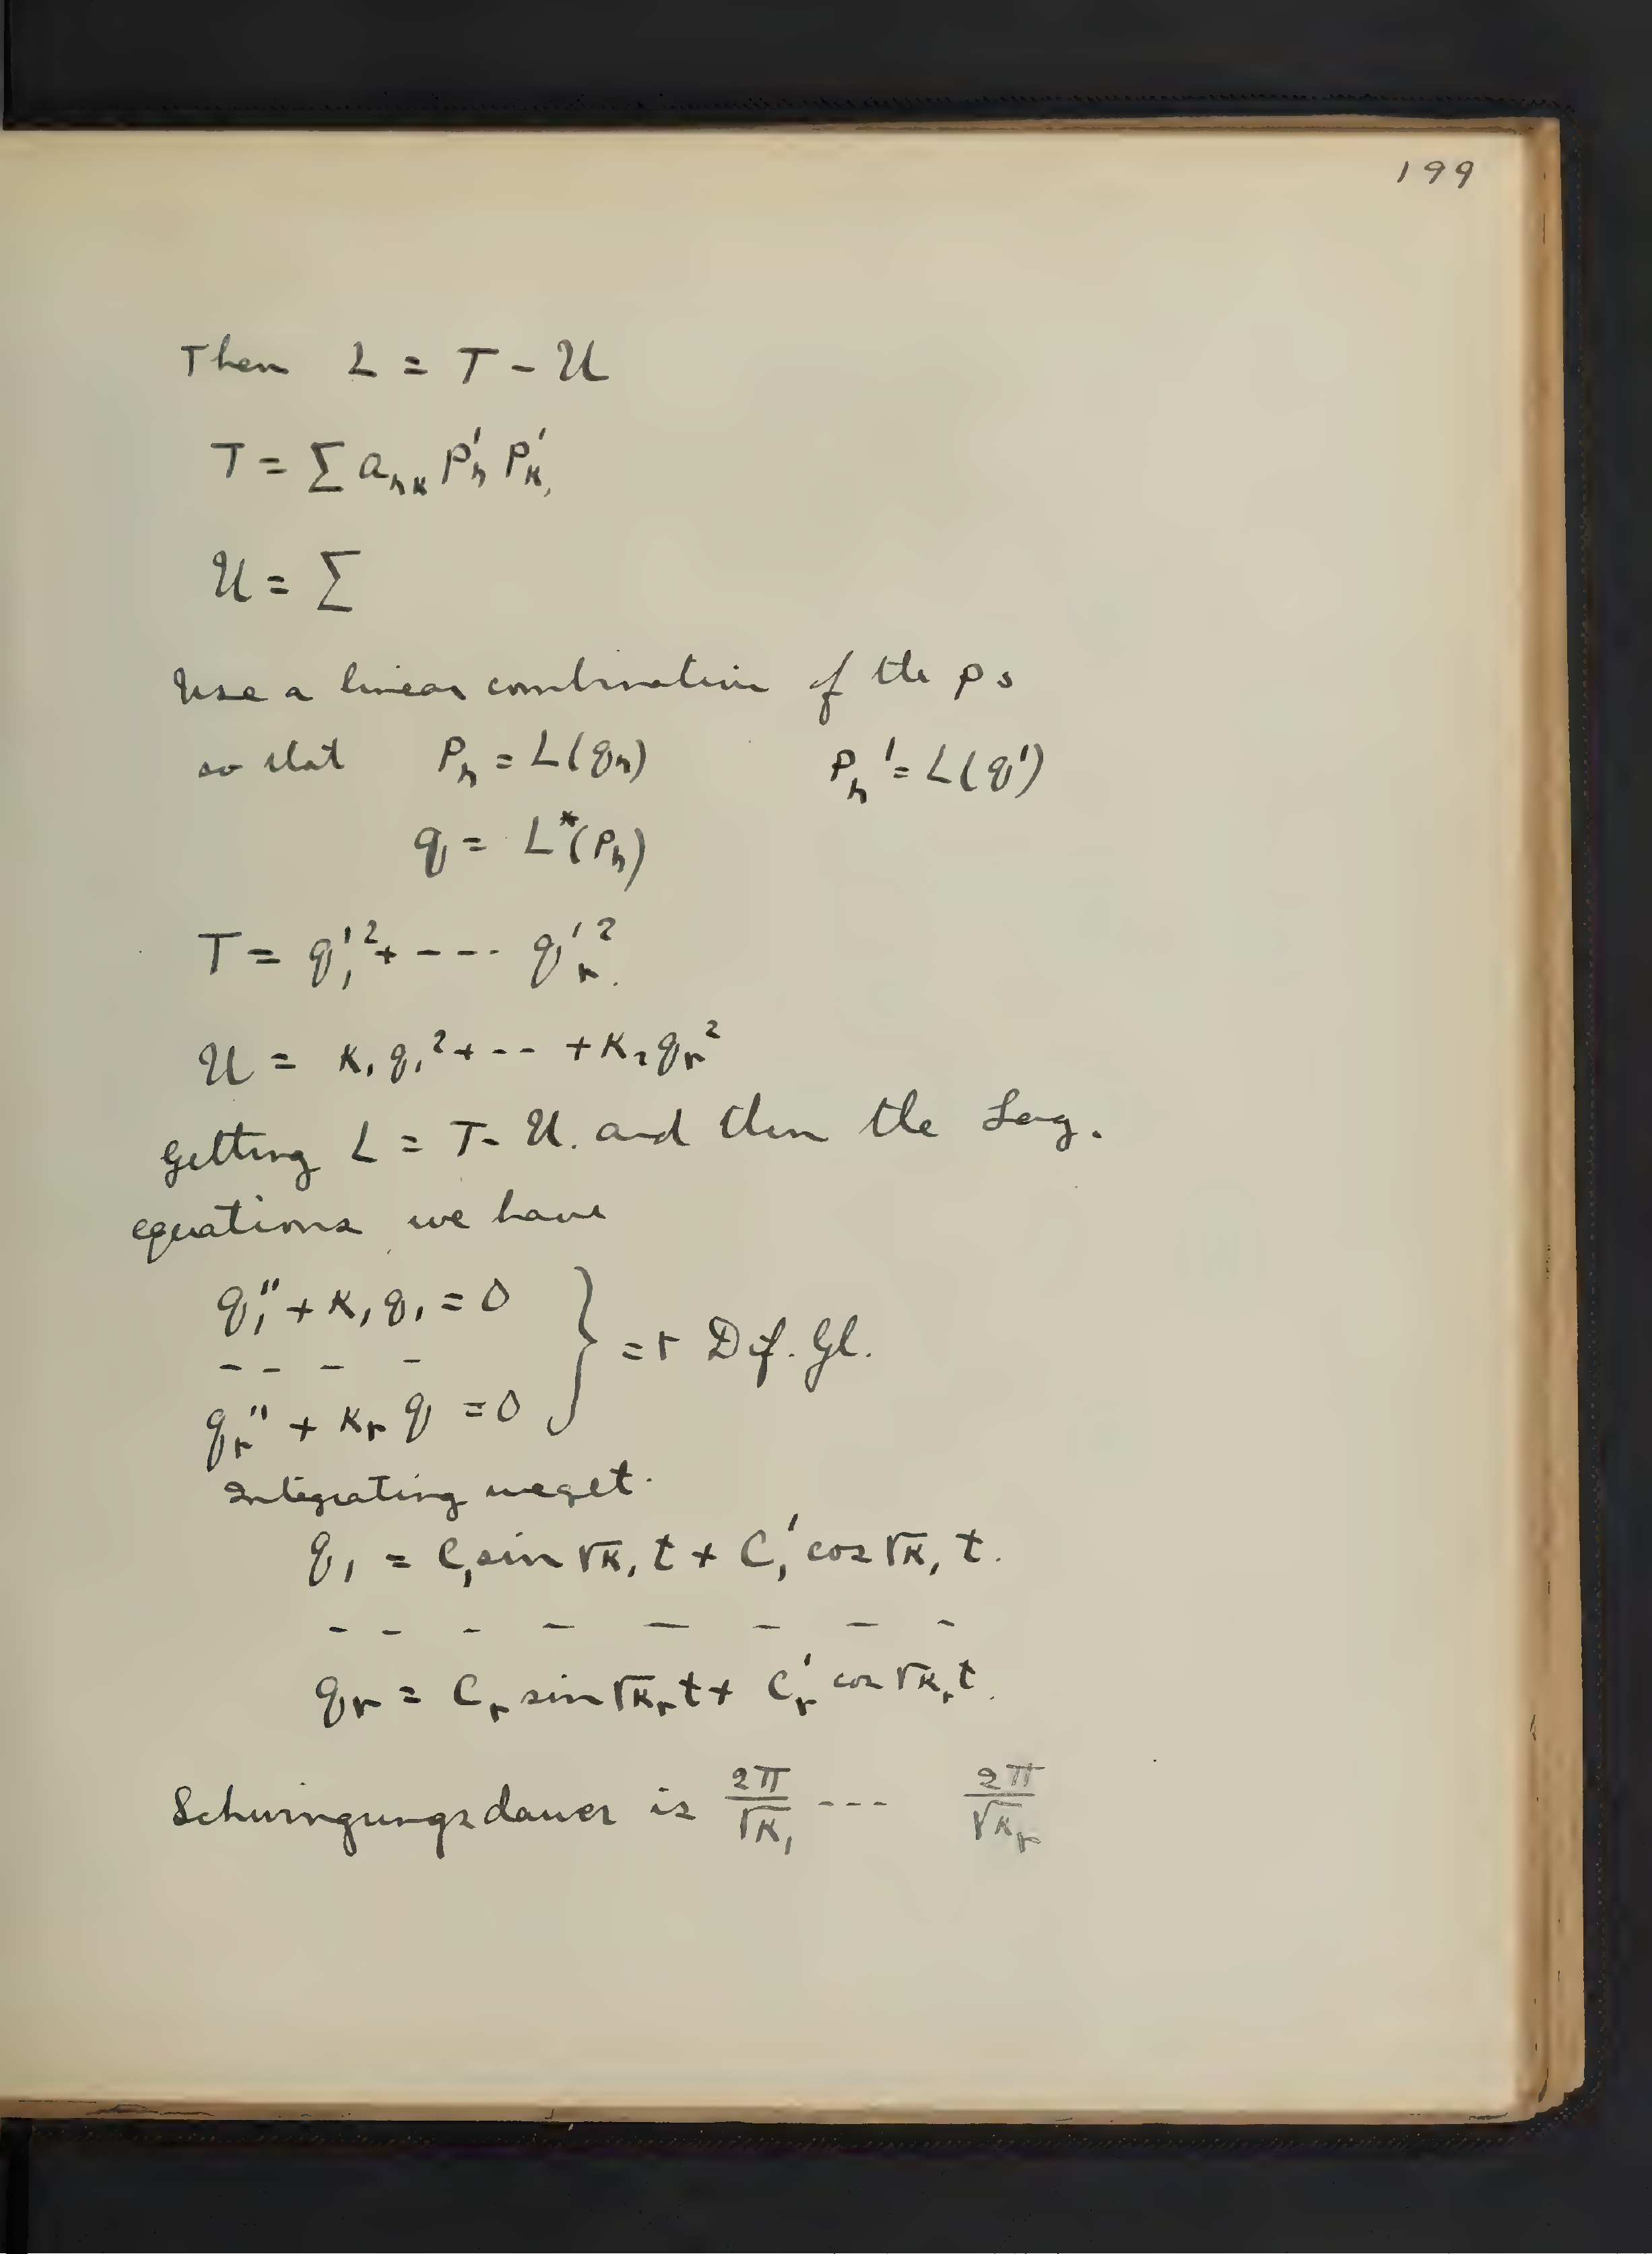 199
Then L = T - U
T = Σ a_hk p'_h p'_k,
U = Σ
Use a linear combination of the ps
so that p_h = L(q_h) p_h' = L(q')
q = L*(p_h)
T = q_1'^2 + ---- q_r'^2.
U = κ_1 q_1^2 + -- + κ_r q_r^2
Getting L = T - U. and then the Lag.
equations we have
q_1'' + κ_1 q_1 = 0
- - - -
} = r Dif. Gl.
q_r'' + κ_r q = 0
Integrating we get.
q_1 = C_1 sin √κ_1 t + C_1' cos √κ_1 t.
- - - - - - - -
q_r = C_r sin √κ_r t + C_r' cos √κ_r t.
Schwingungsdauer is 2π/√κ_1 --- 2π/√κ_r